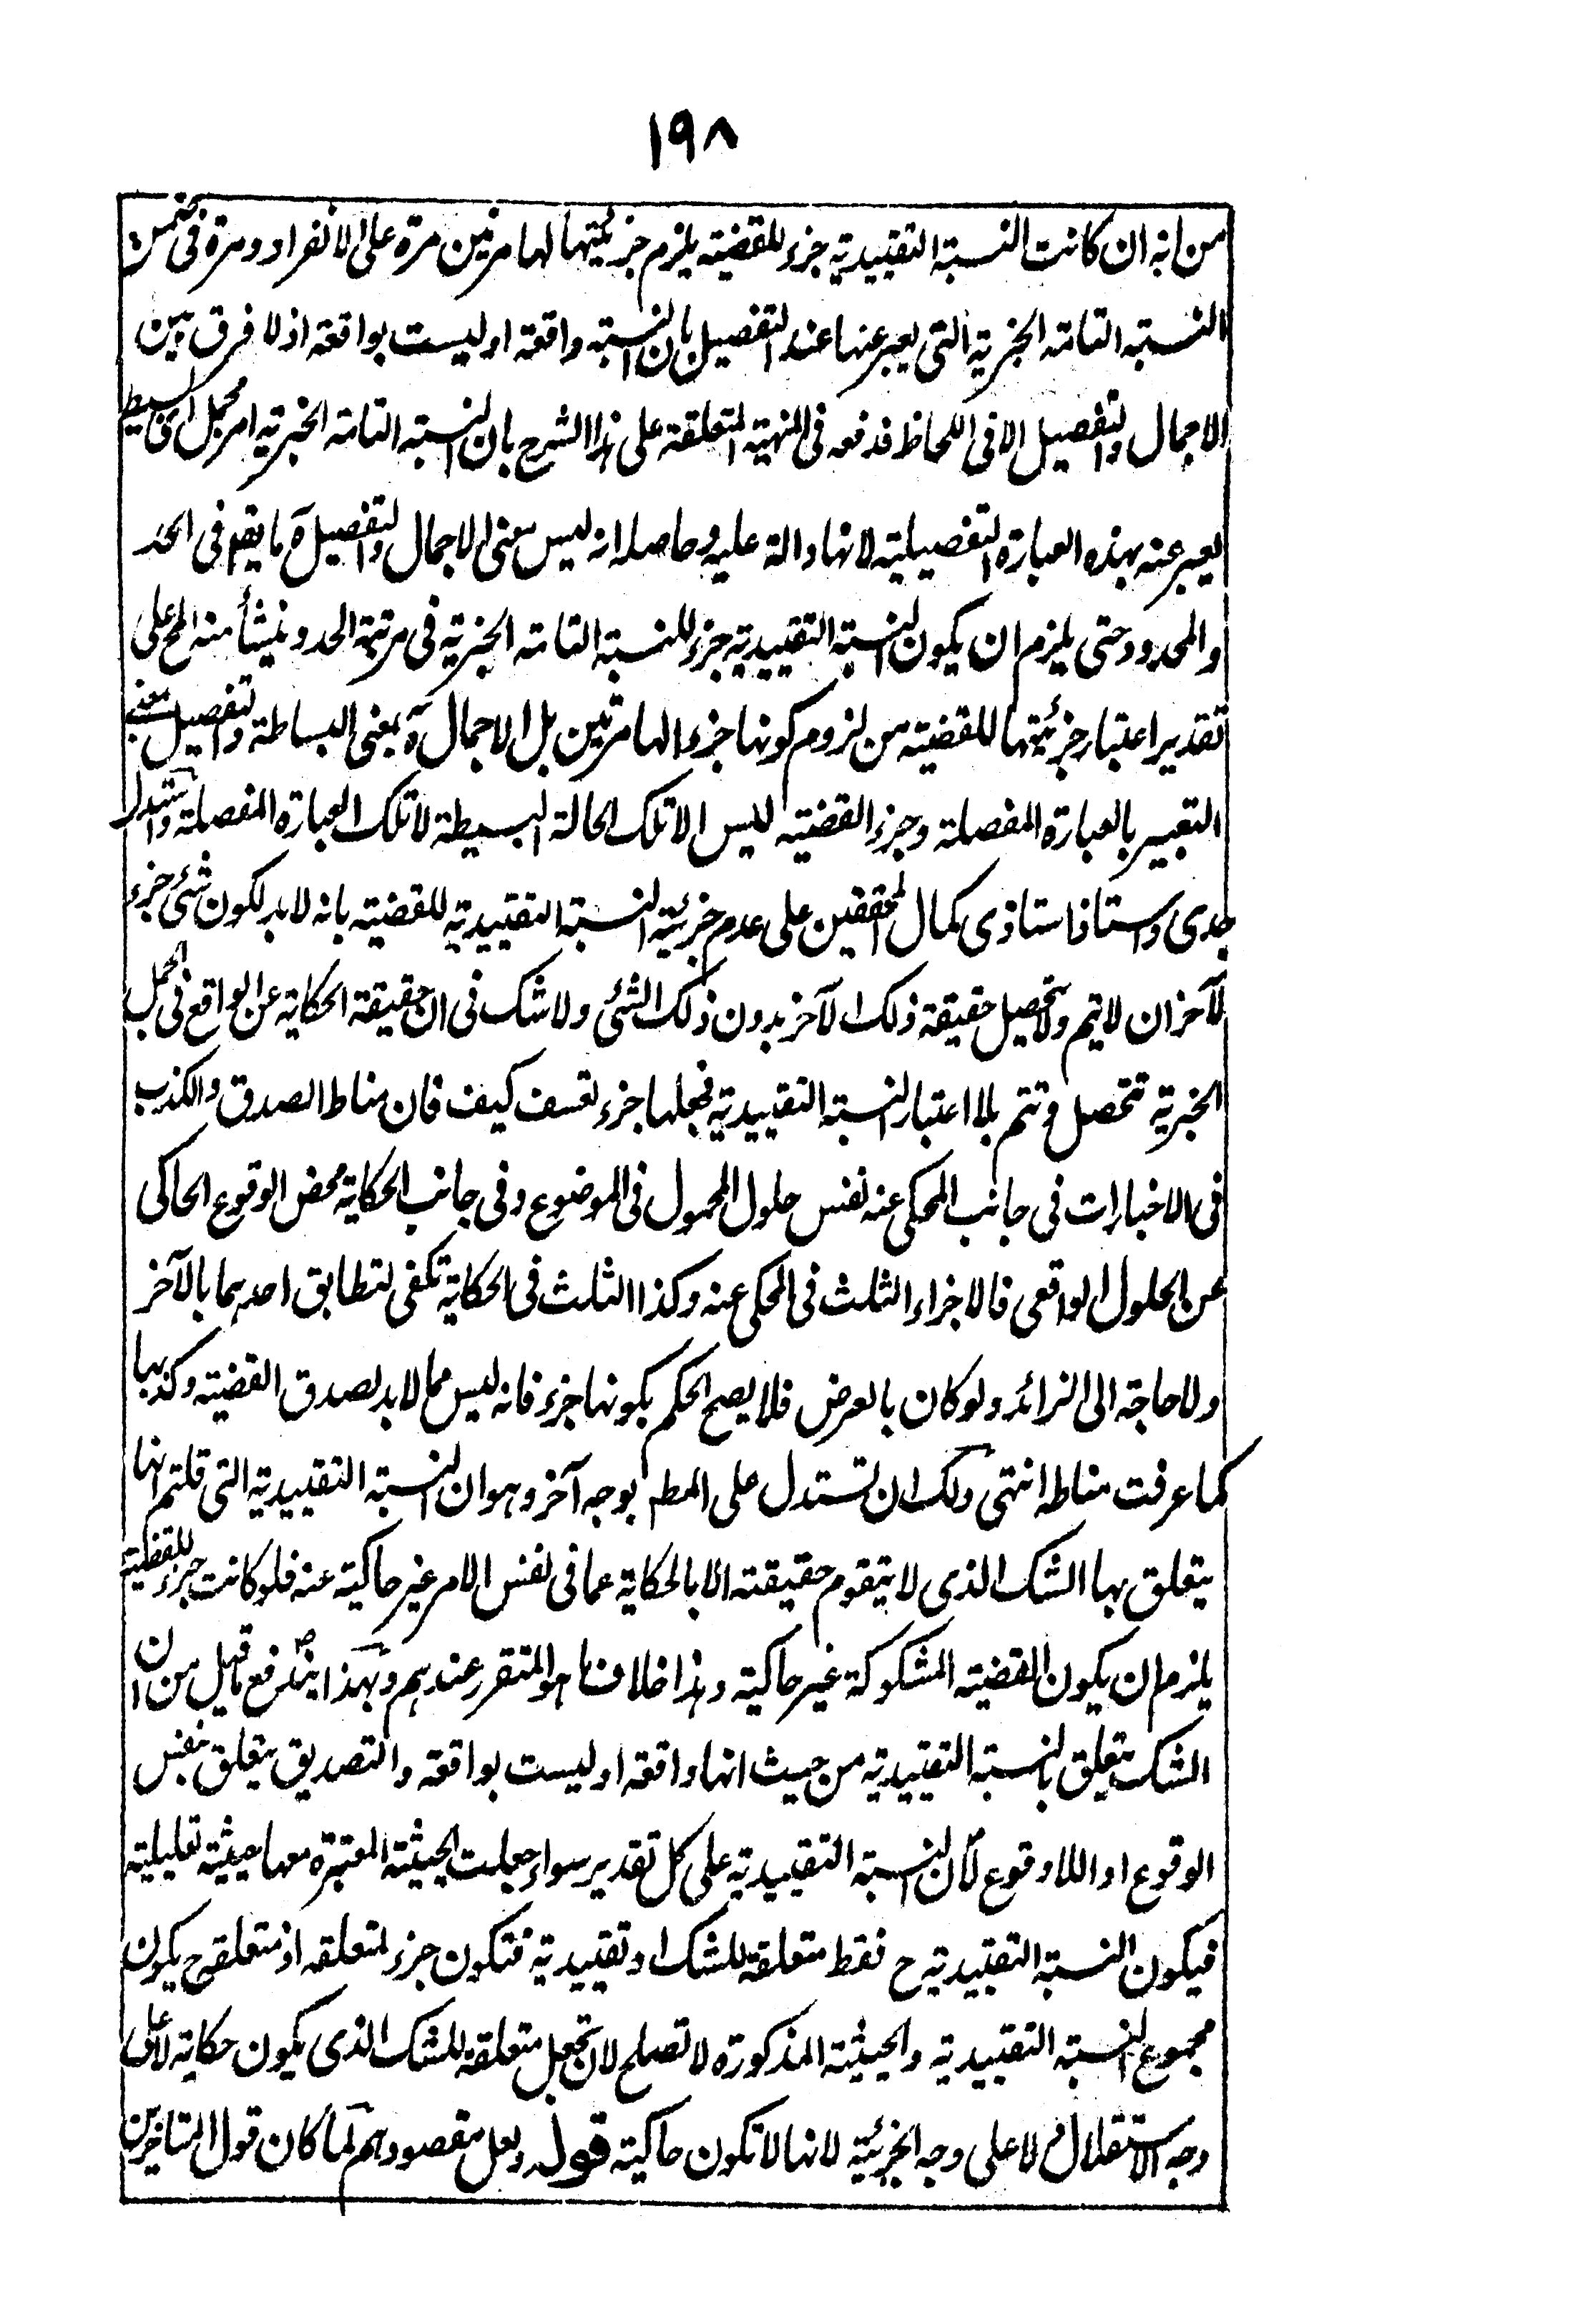 ١٩٨
من انه ان كانت النسبة التقييدية جزء للقضية يلزم جزئيتها لها مرتين مرة على الانفراد ومرة في ضمن
النسبة التامة الخبرية التي يعبر عنها عند التفصيل بان النسبة واقعة او ليست بواقعة اذ لا فرق بين
الاجمال والتفصيل الا في اللحاظ فدفعه في المنهية المتعلقة على هذا الشرح بان النسبة التامة الخبرية امر مجمل اى بسيط
يعبر عنه بهذه العبارة التفصيلية لانها دالة عليه وحاصله انه ليس معنى الاجمال والتفصيل ه ما يقع في الحد
والمحدود حتى يلزم ان يكون النسبة التقييدية جزء للنسبة التامة الخبرية في مرتبة الحد وينشأ منه المح على
تقدير اعتبار جزئيتها للقضية من لزوم كونها جزء الها مرتين بل الاجمال ه بمعنى البساطة والتفصيل بمعنى
التعبير بالعبارة المفصلة وجزء القضية ليس الا تلك الحالة البسيطة لا تلك العبارة المفصلة واستدل
جدى واستاذ استاذى كمال المحققين على عدم جزئية النسبة التقييدية للقضية بانه لا بد لكون شئ جزء
لآخر ان لا يتم ولا يتحصل حقيقة ذلك الآخر بدون ذلك الشئ ولا شك في ان حقيقة الحكاية عن الواقع في الحمل
الخبرية تتحصل وتتم بلا اعتبار النسبة التقييدية فجعلها جزء تعسف كيف فان مناط الصدق والكذب
في الاخبارات في جانب المحكى عنه نفس حلول المحمول في الموضوع وفي جانب الحكاية محض الوقوع الحاكى
عن الحلول الواقعى فالاجزاء الثلث في المحكى عنه وكذا الثلث في الحكاية تكفى لتطابق احدهما بالآخر
ولا حاجة الى الزائد ولو كان بالعرض فلا يصح الحكم بكونها جزء فانه ليس مما لا بد لصدق القضية وكذبها
كما عرفت مناطه انتهى ولك ان تستدل على المط بوجه آخر وهو ان النسبة التقييدية التي قلتم انها
يتعلق بها الشك الذى لا يتقوم حقيقته الا بالحكاية عما في نفس الامر غير حاكية عنه فلو كانت جزء للقضية
يلزم ان يكون القضية المشكوكة غير حاكية وهذا خلاف ما هو المتقرر عندهم وبهذا ايضا يندفع ما قيل من ان
الشك يتعلق بالنسبة التقييدية من حيث انها واقعة او ليست بواقعة والتصديق يتعلق بنفس
الوقوع او اللاوقوع لان النسبة التقييدية على كل تقدير سواء جعلت الحيثية المعتبرة معها حيثية تعليلية
فيكون النسبة التقييدية ح فقط متعلقة للشك او تقييدية فتكون جزء لمتعلقه اذ متعلقه ح يكون
مجموع النسبة التقييدية والحيثية المذكورة لا تصلح لان تجعل متعلقة للشك الذى يكون حكاية على
وجه الاستقلال لا على وجه الجزئية لانها لا تكون حاكية قوله ولعل مقصودهم لما كان قول المتاخرين